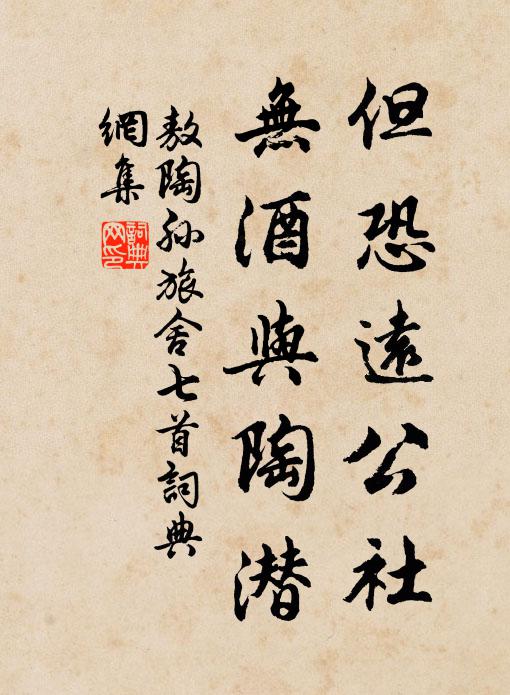 但恐遠公社
無酒與陶潜
敖陶孙旅舍七首詞典
網集
詞典网印